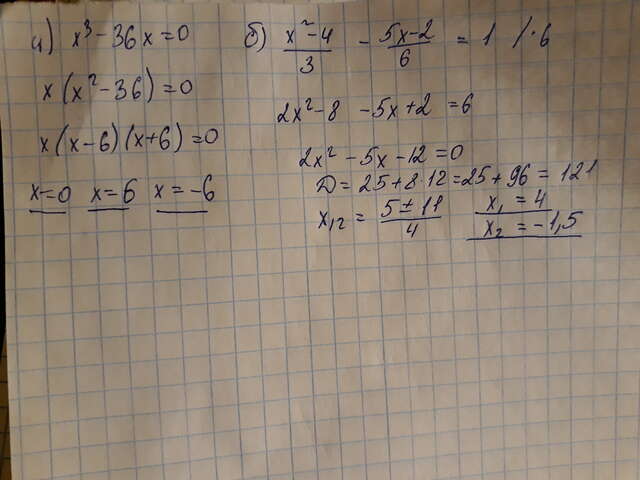 а) x³-36x=0
x(x²-36)=0
x(x-6)(x+6)=0
x=0 x=6 x=-6
б) x²-4/3 - 5x-2/6 = 1 /·6
2x²-8 -5x+2 =6
2x²-5x-12=0
D=25+8·12=25+96=121
x₁₂ = 5±11/4
x₁ = 4
x₂ = -1,5